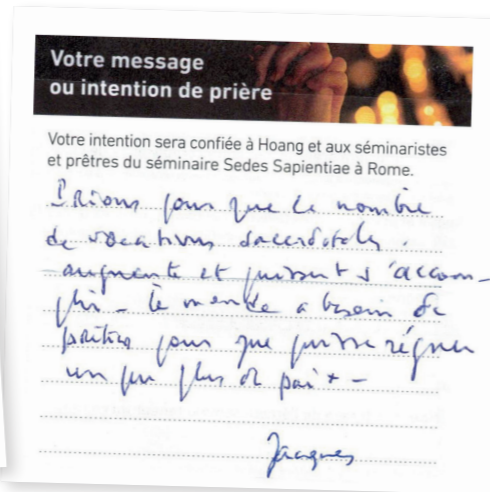 Votre message
ou intention de prière
Votre intention sera confiée à Hoang et aux séminaristes
et prêtres du séminaire Sedes Sapientiae à Rome.
Prions pour que le nombre
de vocations sacerdotales
augmente et puissent s'accom-
plir - le monde a besoin de
prêtres pour que puisse régner
un peu plus de paix -
Jacques